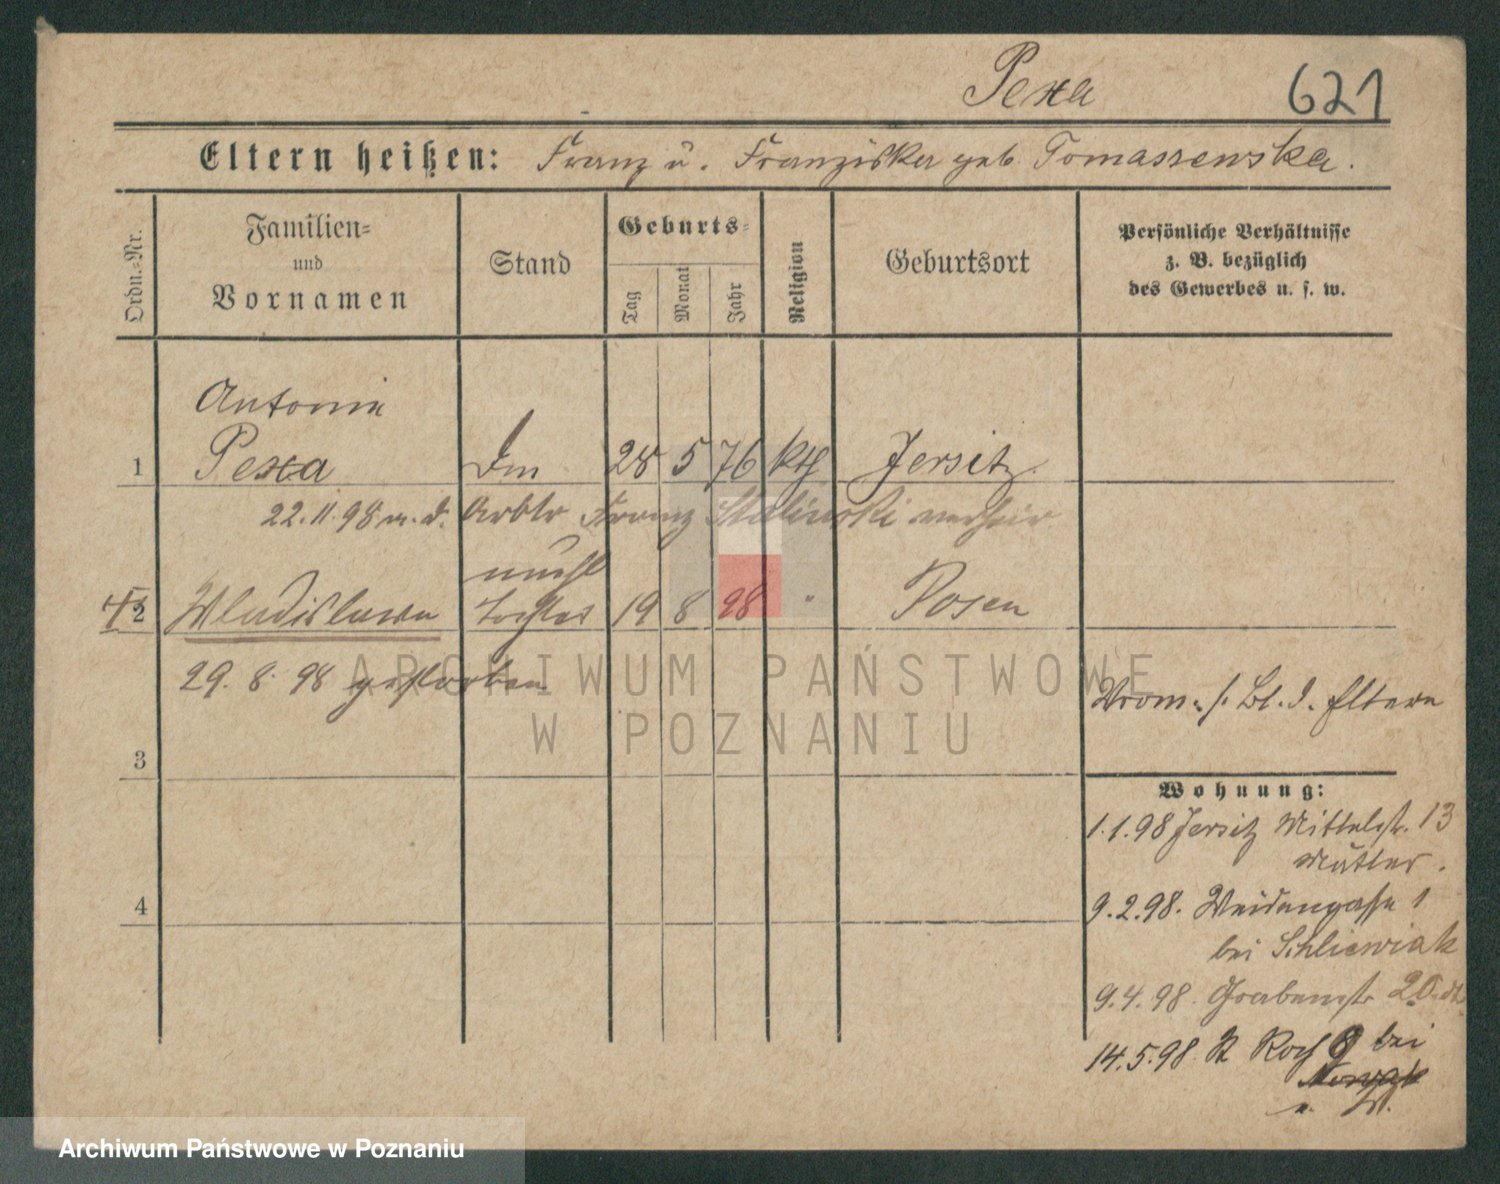 Pexa 621
Eltern heißen: Franz u. Franziska geb. Tomaszewska.
Ordn.=Nr.
Familien=
und
Vornamen
Stand
Geburts=
Tag
Monat
Jahr
Religion
Geburtsort
Persönliche Verhältnisse
z. B. bezüglich
des Gewerbes u. s. w.
Antonie
1 Pexa 28 5 76 kth Jersitz
22.11.98 m. d. Arbtr Franz Stelinski verheir
unehl
2 Wladislawa Tochter 19 8 98 " Posen
29. 8. 98 gestorben
Vrom. s. Bl. d. Eltern
3
Wohnung:
1.1.98 Jersitz Mittelstr. 13
Mutter.
9.2.98. Weidengasse 1
4
bei Schliewiak
9.4.98. Grabenstr 20
14.5.98. St Roch 9 bei
Nowak
ARCHIWUM PAŃSTWOWE
W POZNANIU
Archiwum Państwowe w Poznaniu